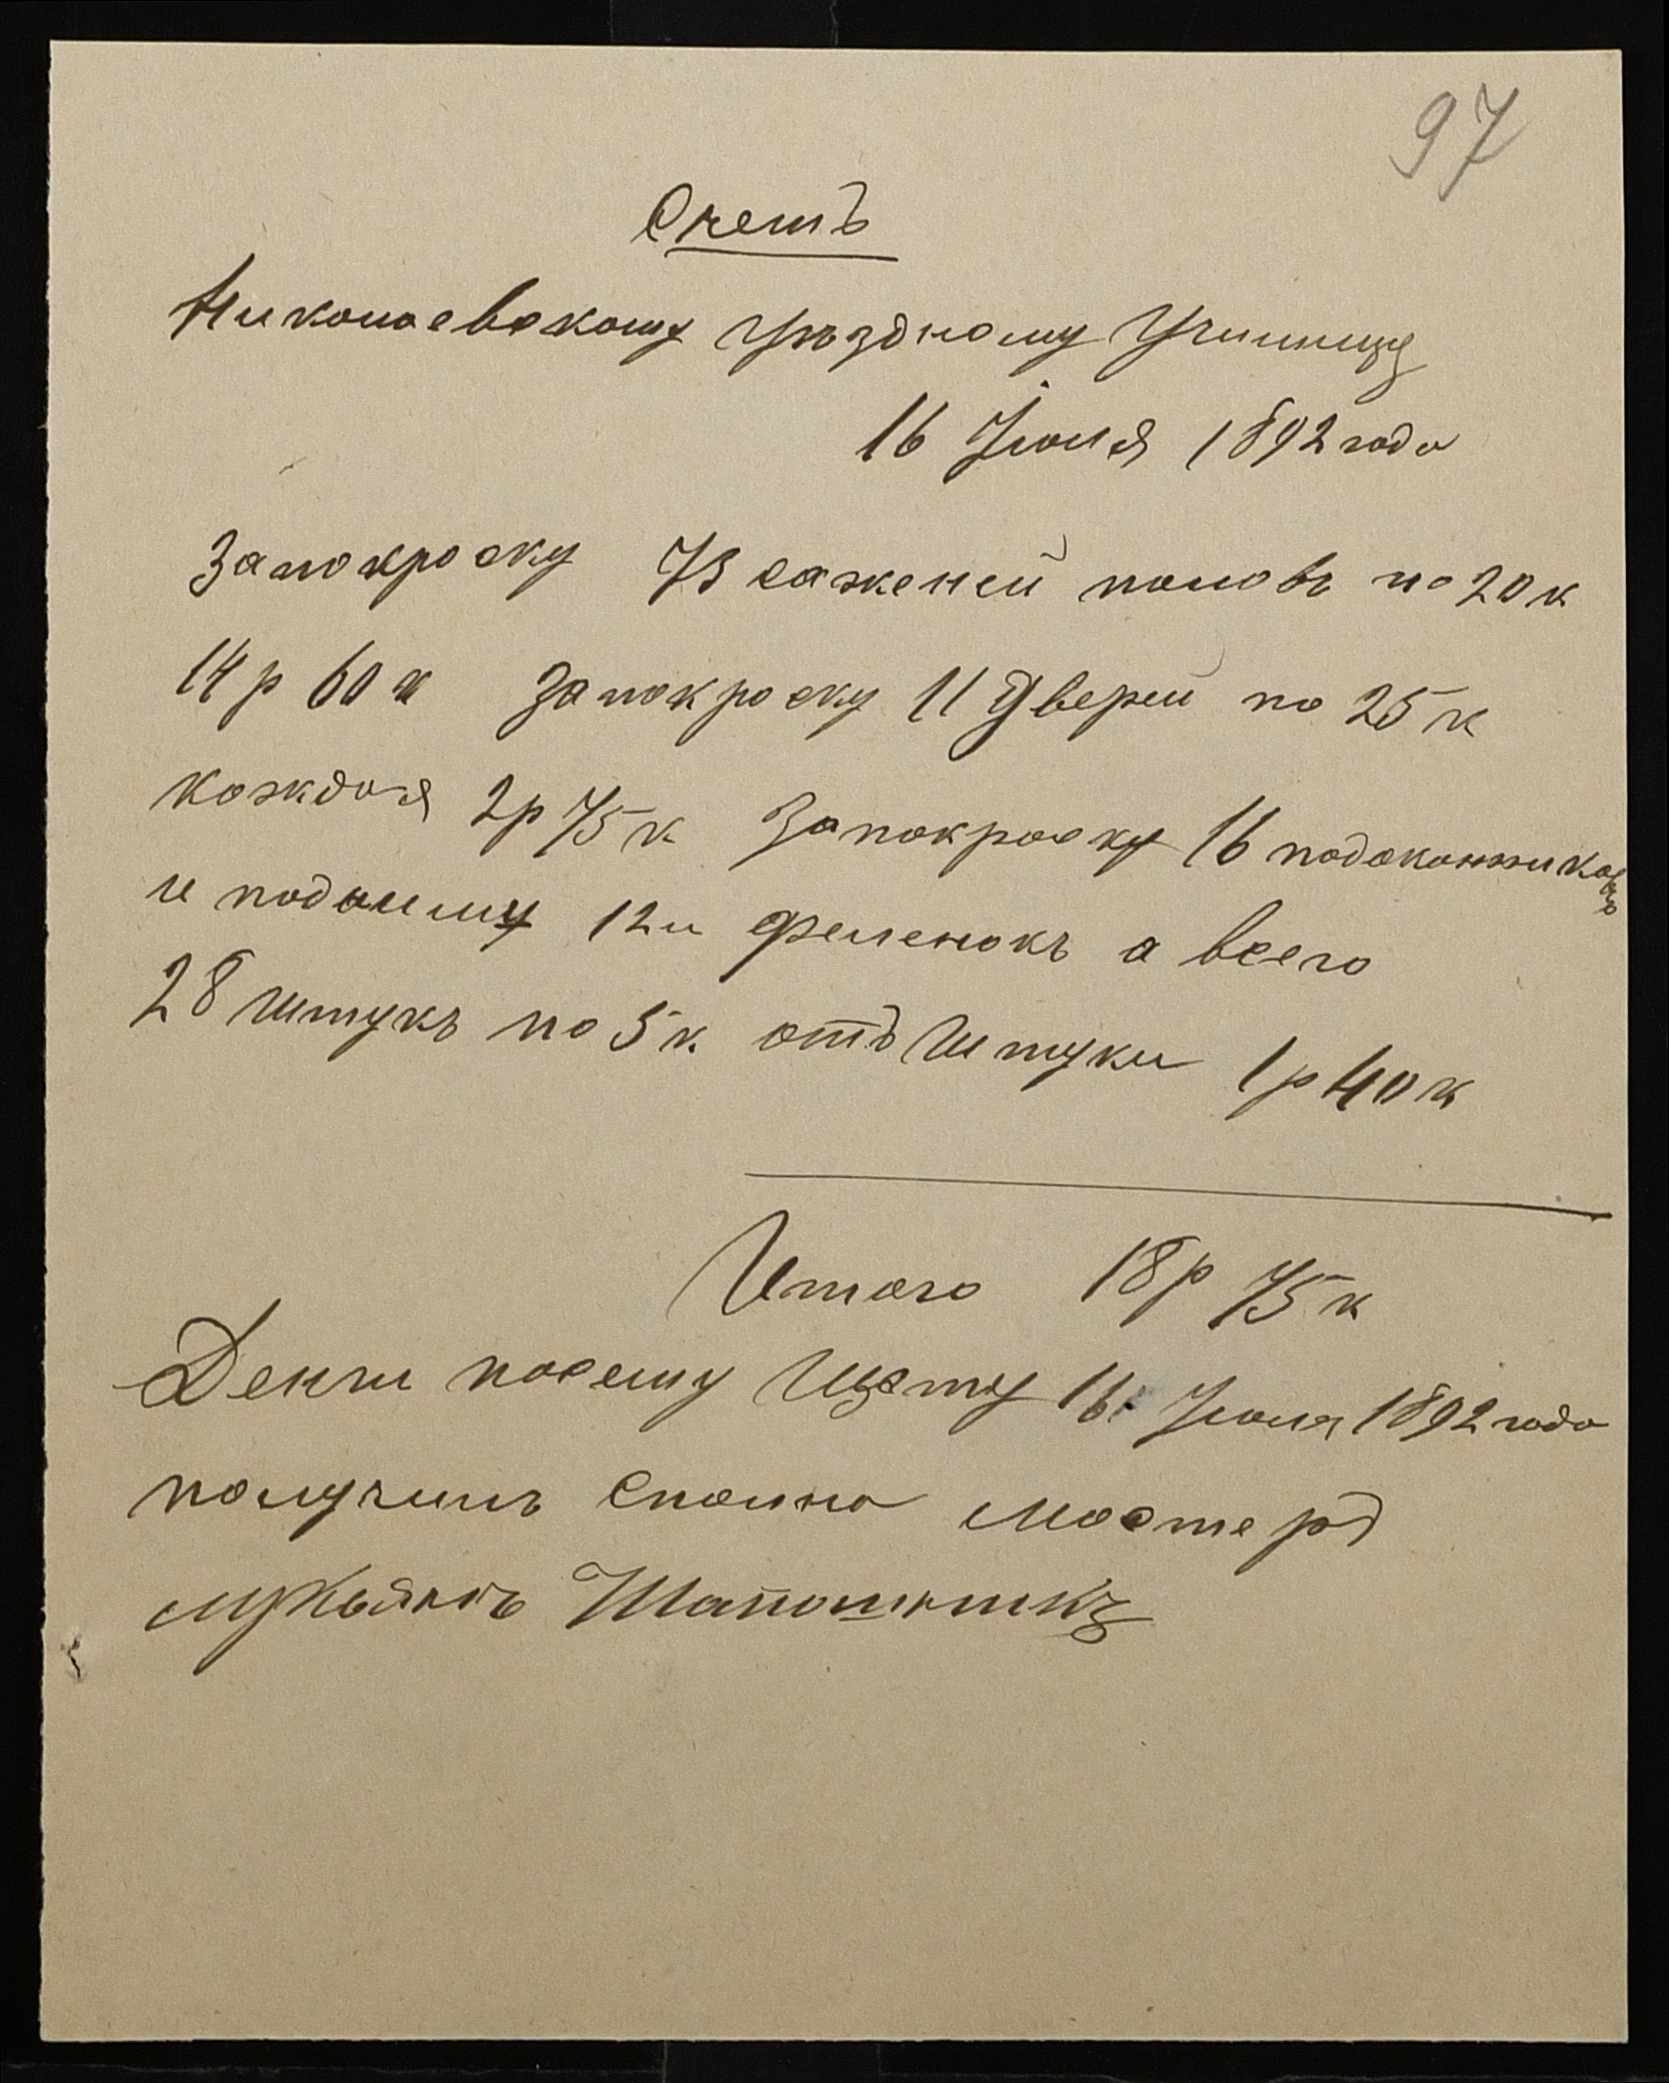 97
Счетъ
Николаевскому Уѣздному Училищу
16 Іюля 1892 года
Запокраску 73 саженей половъ по 20 к
14 р 60 к Запокраску 11 Дверей по 25 к
каждая 2 р 75 к Запокраску 16 подоконниковъ
и 12и Филенокъ а всего
28 штукъ по 5 к. отъ Штуки 1 р 40 к
Итого 18 р 75 к
Денги посему Щету 16 Іюля 1892 года
получилъ Сполна Мастеръ
Лукьянъ Шапошникъ